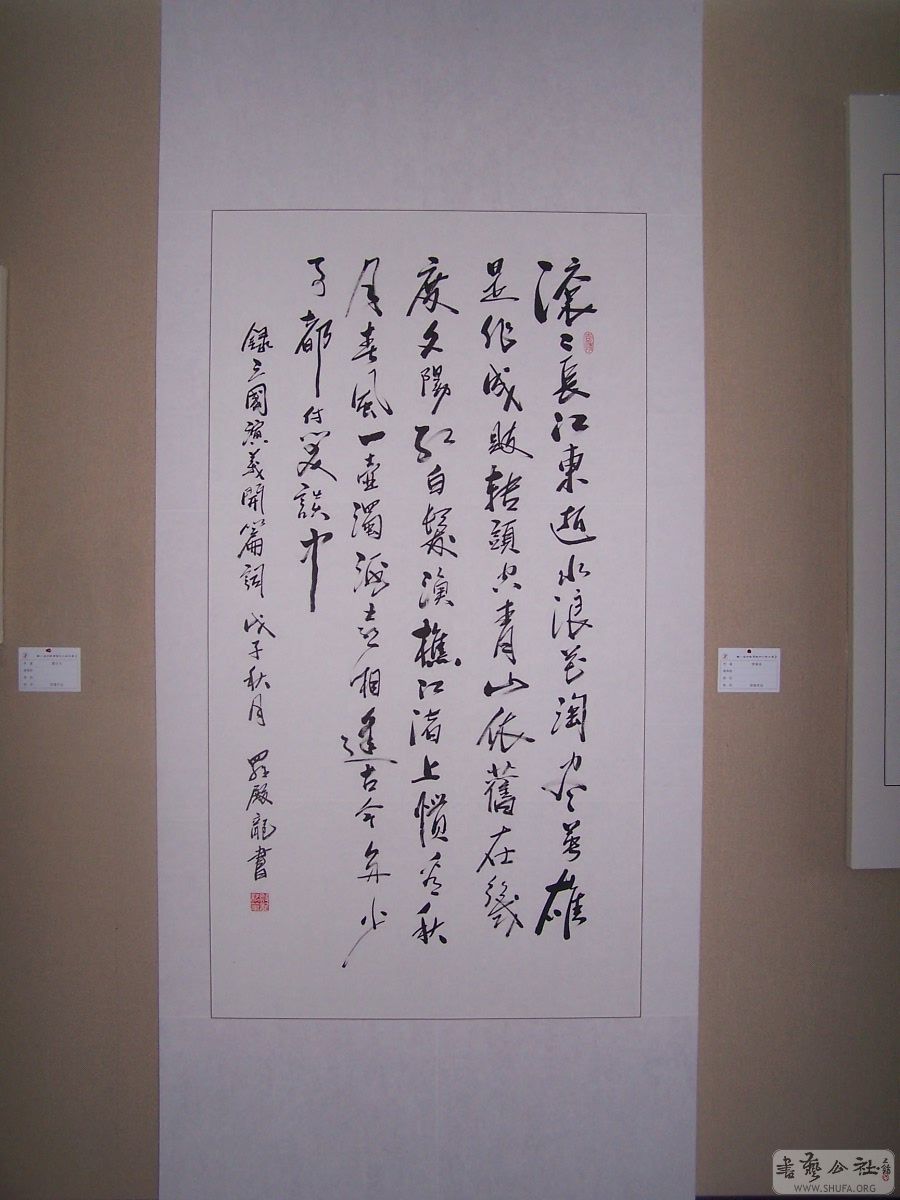 滚〻長江東逝水浪花淘尽英雄
是非成敗轉頭空青山依舊在幾
度夕陽紅白髮漁樵江渚上慣看秋
月春風一壺濁酒喜相逢古今多少
事都付笑談中
錄三國演義開篇詞 戊子秋月 羅殿龍書
書藝公社
WWW.SHUFA.ORG